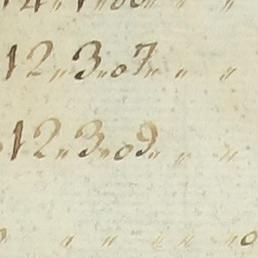 12〃3〃07〃 〃 〃
12〃3〃09〃 〃 〃
〃 〃 〃 〃 〃0